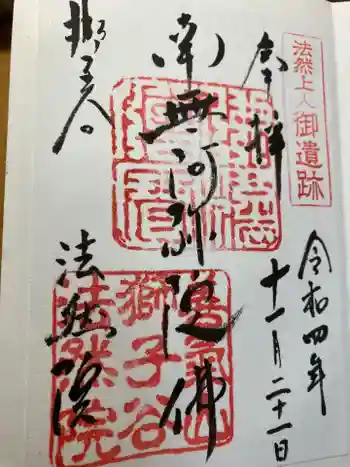 法然上人御遺跡
奉拝
令和四年
十一月二十一日
南無阿弥陀佛
獅子谷
法然院
法然院